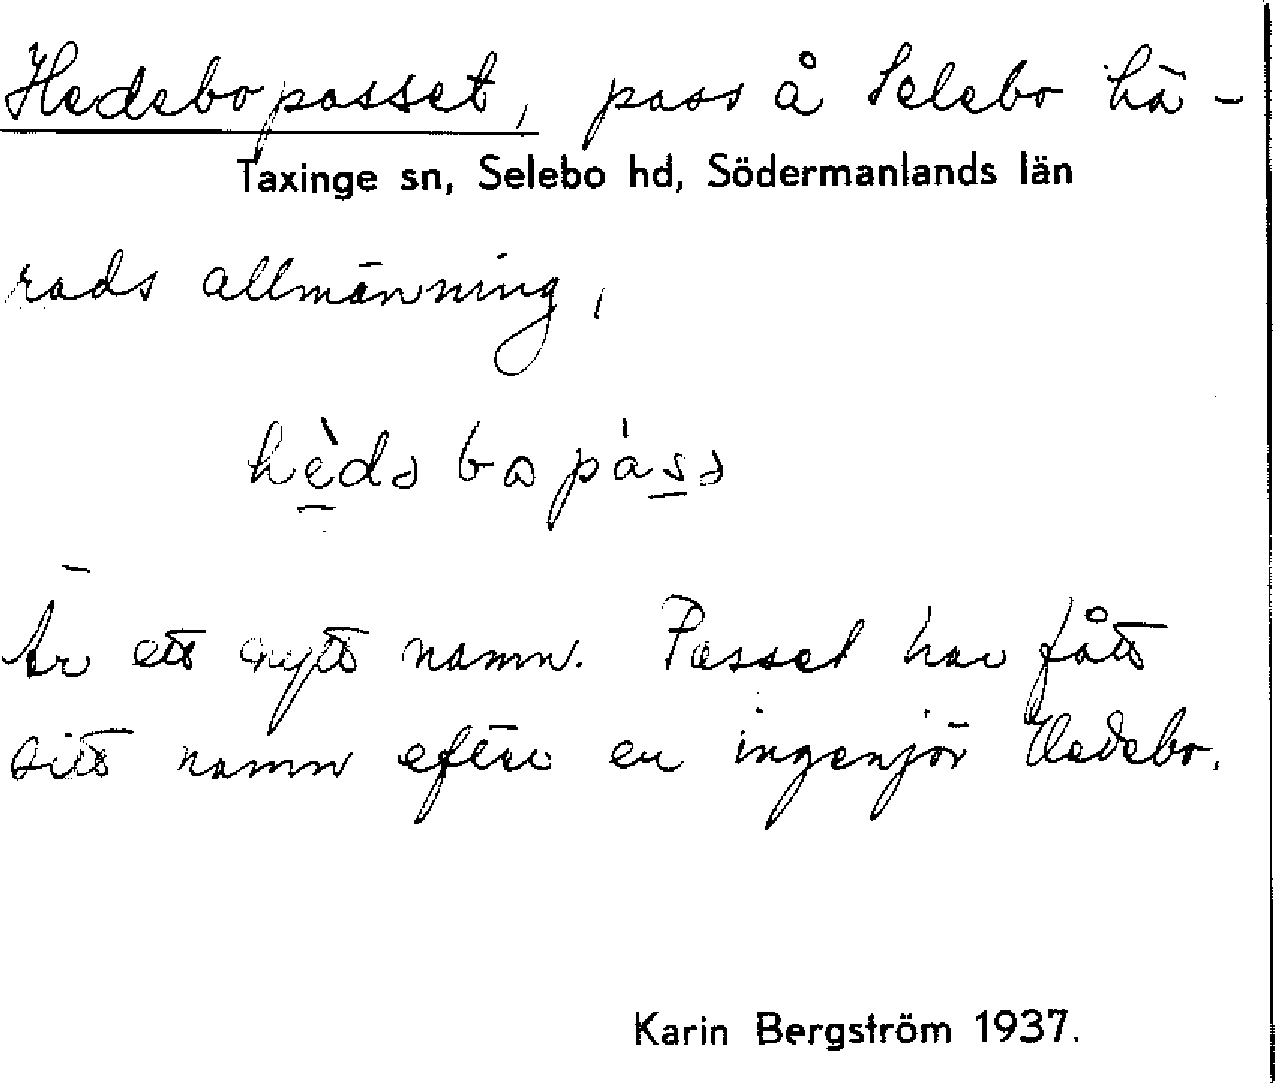 Hedebopasset, pass å Selebo hä-
Taxinge sn, Selebo hd, Södermanlands län
rads allmänning,
Är ett nytt namn. Passet har fått
sitt namn efter en ingenjör Hedebo.
Karin Bergström 1937.